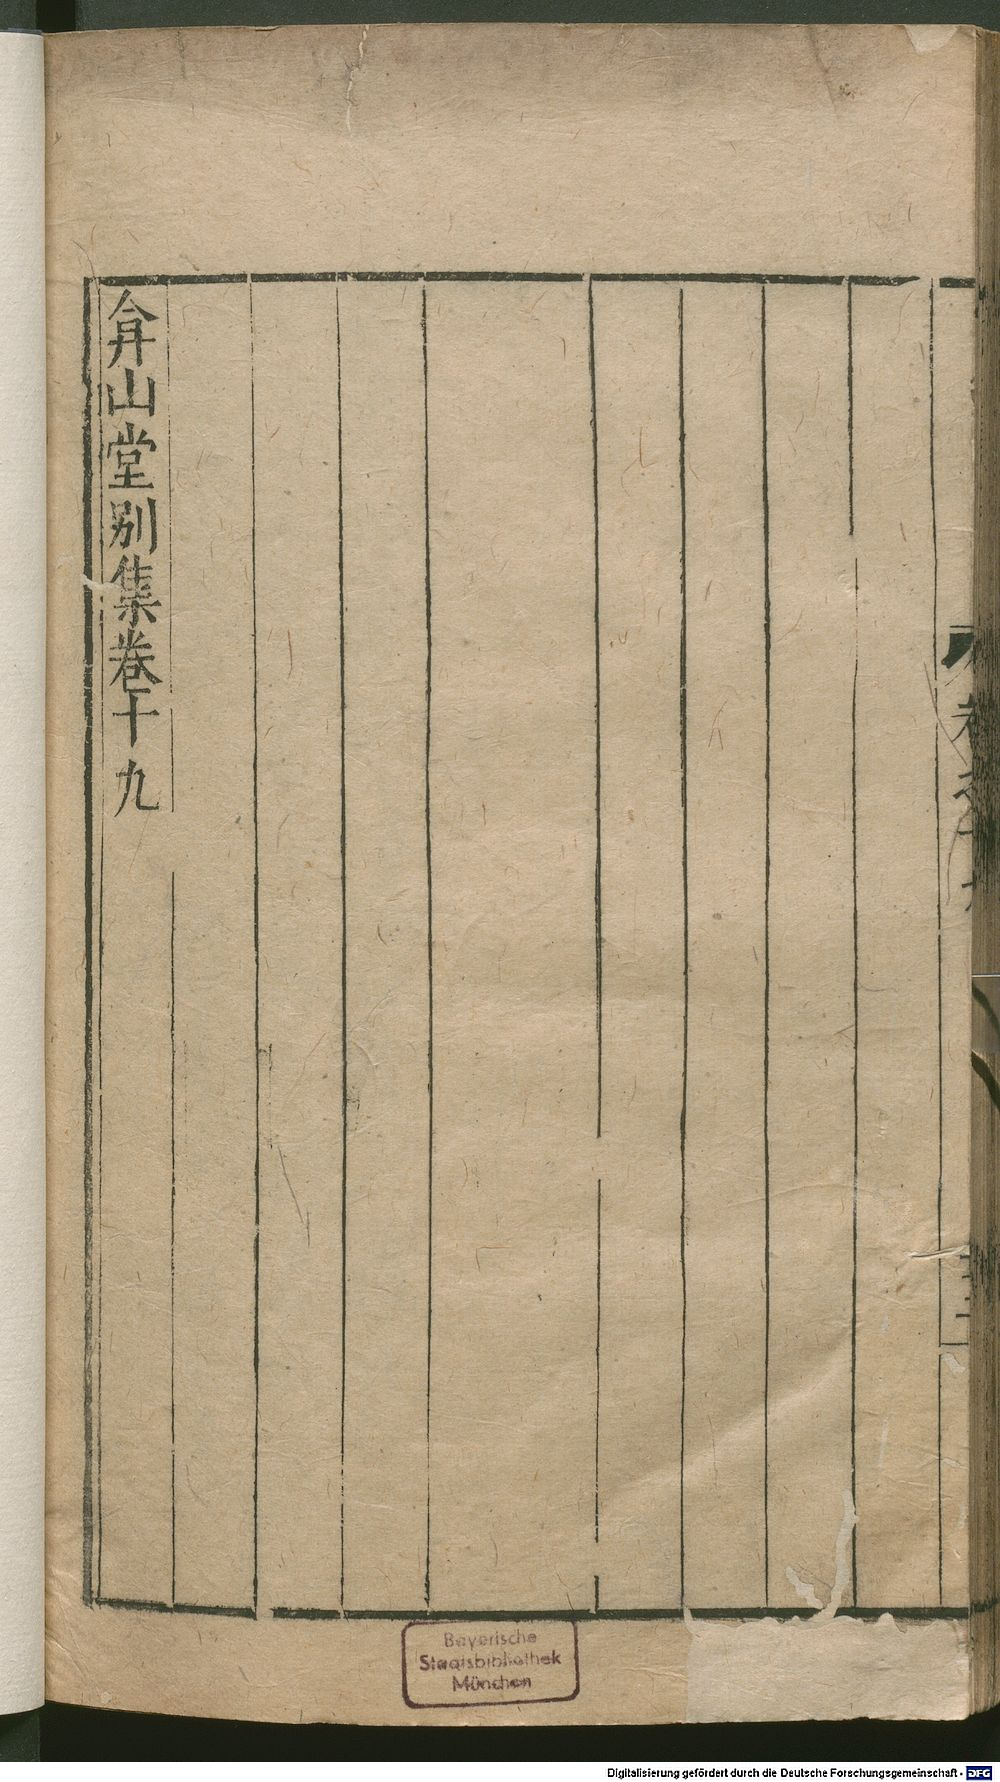 弇山堂别集卷十九
Bayerische
Staatsbibliothek
München
Digitalisierung gefördert durch die Deutsche Forschungsgemeinschaft - DFG